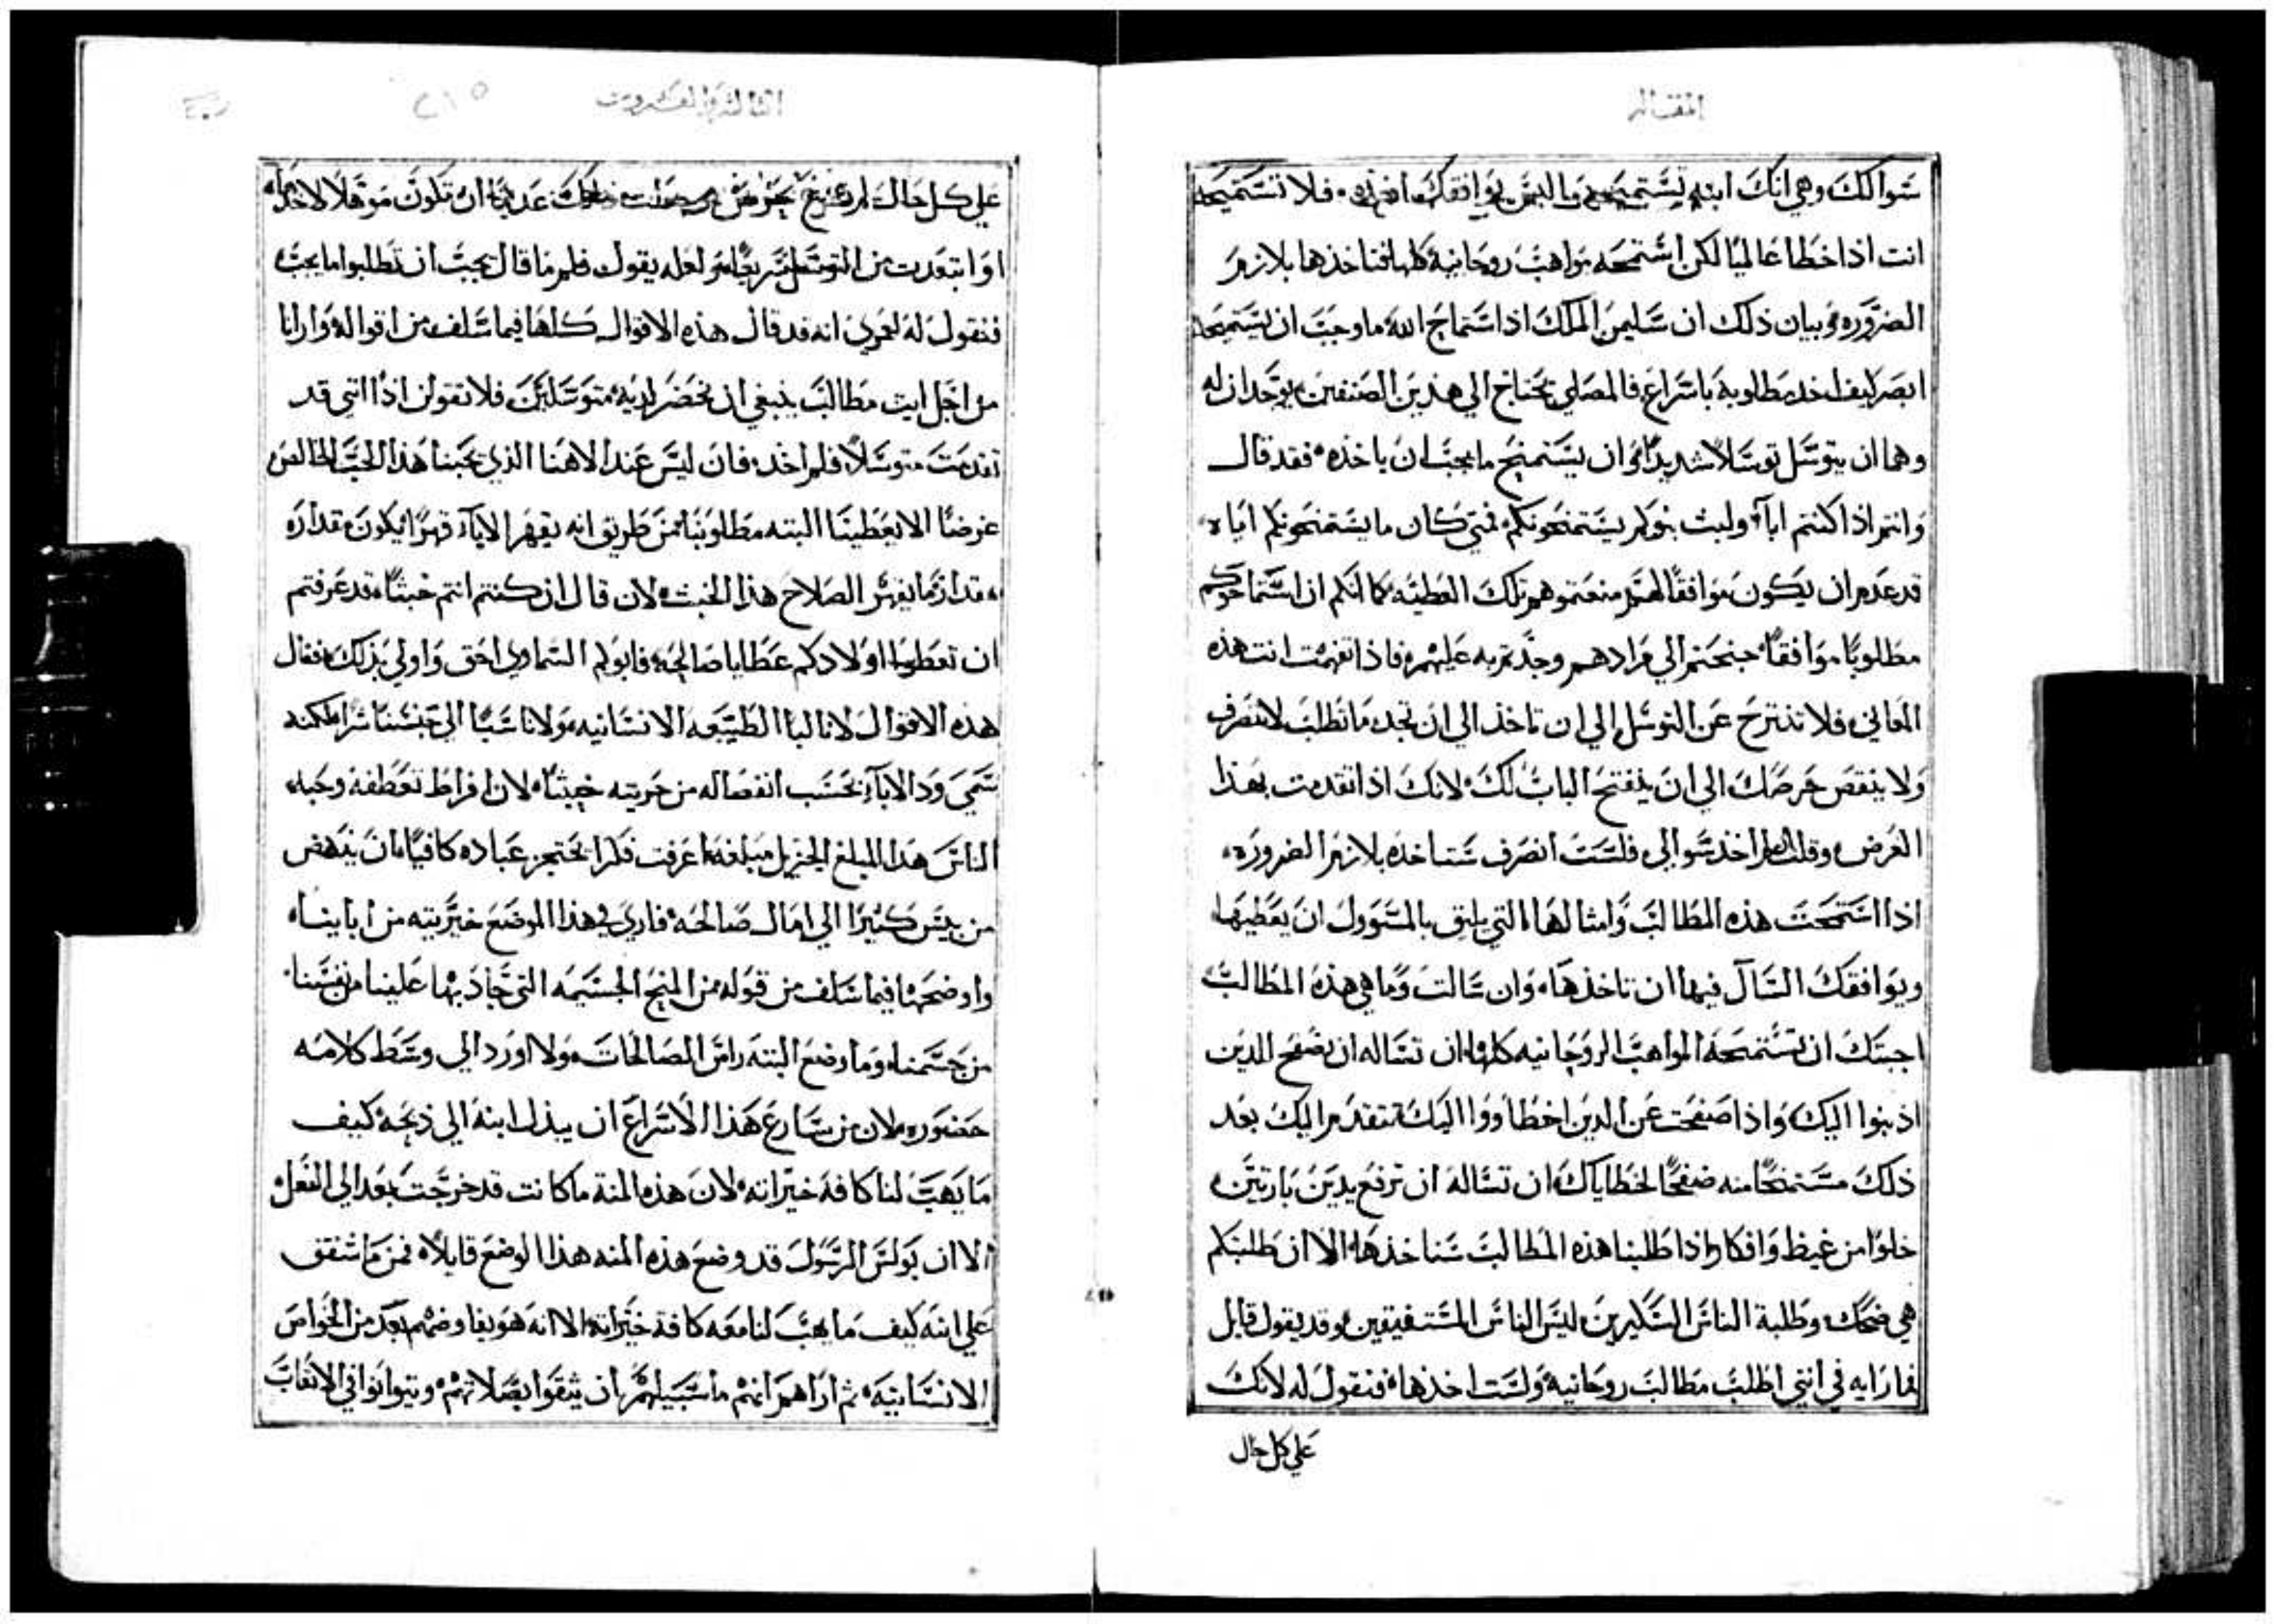 المقاله
سوالك وهي انك ابنه فلا تستميحه
انت اذا خطا عالميا لكن استمحه مواهب روحانية كلها فتاخذها بلازم
الضروره وبيان ذلك ان سليمن الملك اذا استماح الله ما وجب ان يستميحه
ابصر كيف اخذ مطلوبه باسراع فالمصلي يحتاج الي هذين الصنفين يوجدان له
وهما ان يتوسل توسلا شديدا وان يستميح ما يجب ان ياخذه فقد قال
وانتم اذا كنتم اباء ولبث بنوكم يستمنحونكم فمتي كان ما يستمنحونكم اياه
قد عدم ان يكون موافقا لهم منعتموهم تلك العطيه كما انكم ان استماحوكم
مطلوبا موافقا جنحتم الي مرادهم وجدتم به عليهم فاذا تفهمت انت هذه
المعاني فلا تنتزح عن التوسل الي ان تاخذ الي ان تجد ما تطلب لا تنصرف
ولا ينقص حرصك الي ان ينفتح الباب لك لانك اذا تقدمت بهذا
الغرض وقلت لم اخذ سوالي فلست انصرف ستاخذه بلازم الضروره
اذا استمحت هذه المطالب وامثالها التي يليق بالمسوول ان يعطيها
ويوافقك السال فيها ان تاخذها وان سالت وما هي هذه المطالب
اجبتك ان تستمحه المواهب الروحانيه كلها ان تساله ان يصفح للذين
اذنبوا اليك واذا صفحت عن الذين اخطاووا اليك تتقدم اليك بعد
ذلك مستمنحا منه صفحا لخطاياك ان تساله ان ترفع يدين بارتين
خلوا من غيظ وافكار اذا طلبنا هذه المطالب سناخذها الا ان طلبتكم
هي ضحك وطلبة الناس السكيرين ليس الناس المستفيقين وقد يقول قايل
فما رايه في انني اطلب مطالب روحانية ولست اخذها فنقول له لانك
علي كل حال
الثالثه والعشرون
٢١٥
علي كل حال لم ان تكون موهلا لاخذها
او ابتعدت من التوسل سريعا ولعله يقول فلم ما قال يجب ان تطلبوا ما يجب
فنقول له لعمري انه قد قال هذه الاقوال كلها فيما سلف من اقواله وارانا
من اجل ايت مطالب ينبغي ان نحضر لديه متوسلين فلا تقولن اذا انني قد
تقدمت متوسلا فلم اخذ فان ليس عند الاهنا الذي يحبنا هذا الحب الخالص
غرضا الا يعطينا البته مطلوبنا من طريق انه يقهر الاباء قهرا يكون مقداره
مقدار ما يقهر الصلاح هذا الخبث لان قال ان كنتم انتم خبثا قد عرفتم
ان تعطوا اولادكم عطايا صالحه فابوكم السماوي احق واولي بذلك فقال
هذه الاقوال لا ثالبا الطبيعه الانسانيه ولا ناسبا الي جنسنا شرا لكنه
سمي ود الاباء بحسب انفصاله من خيريته خبثا لان افراط تعطفه وحبه
الناس هذا المبلغ الجزيل مبلغه اعرفت فكرا يحتجز عباده كافيا ان ينهض
من ييس كثيرا الي امال صالحه فاري في هذا الموضع خيريته من اباينا
واوضحها فيما سلف من قوله من المنح الجسيمه التي جاد بها علينا من نفسنا
من جسمنا وما وضع البته راس الصالحات ولا اورد الي وسط كلامه
حضوره لان من سارع هذا الاسراع ان يبذل ابنه الي ذبحه كيف
ما يهب لنا كافة خيراته لان هذه المنة ما كانت قد خرجت بعد الي الفعل
الا ان بولس الرسول قد وضع هذه المنه هذا الوضع قايلا فمن ما شفق
علي ابنه كيف ما يهب لنا معه كافة خيراته الا انه هو يفاوضهم بعد من الخواص
الانسانيه ثم اراهم انهم ما سبيلهم ان يثقوا بصلاتهم ويتوانوا في الاتعاب